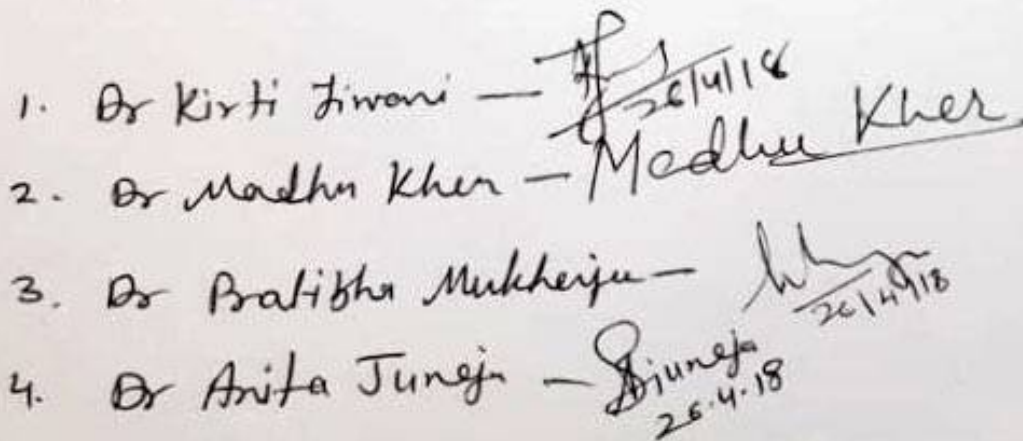 1. Dr Kirti Tiwari — 26/4/18
2. Dr Madhu Kher — Madhu Kher
3. Dr Pratibha Mukherjee — 26/4/18
4. Dr Anita Juneja — Ajuneja
26.4.18